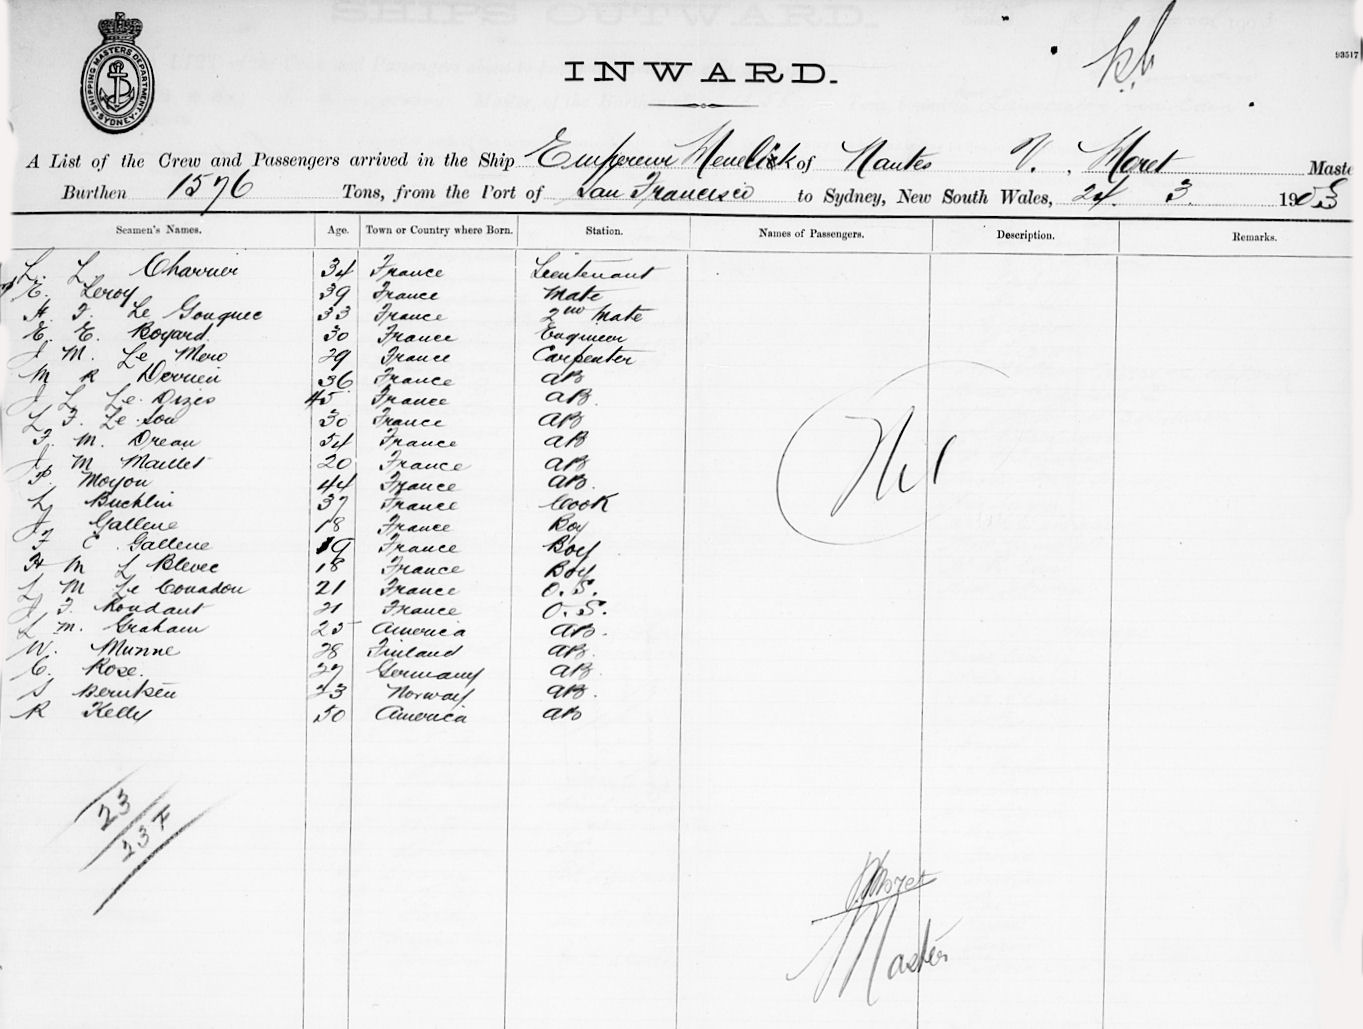 SHIPPING MASTERS DEPARTMENT SYDNEY
INWARD.
93517
A List of the Crew and Passengers arrived in the Ship Empereur Menelick of Nantes V. Moret Maste
Burthen 1576 Tons, from the Port of San Francisco to Sydney, New South Wales, 24. 3. 1905
Seamen's Names. Age. Town or Country where Born. Station. Names of Passengers. Description. Remarks.
L. L. Charrier 34 France Lieutenant
E. Leroy 39 France Mate
A. F. Le Gouguec 33 France 2nd Mate
E. E. Bogard 30 France Engineer
J M. Le Mero 29 France Carpenter
M R Derrien 36 France AB
J L Le Dizes 45 France AB.
L F. Le Sou 30 France AB
F. M. Drean 54 France AB
J M Maillet 20 France AB
P. Moyon 44 France AB.
L Buchlin 37 France Cook
J Gallene 18 France Boy
F E Gallene 19 France Boy
H M L Blevec 18 France Boy
L M Le Couadou 21 France O.S.
J F. Roudaut 21 France O.S.
L M. Graham 25 America AB.
W. Munne 28 Finland AB.
C. Rose 27 Germany AB
S Berntsen 23 Norway AB.
R Kelly 50 America AB
Nil
23
23 F
Moret
Master